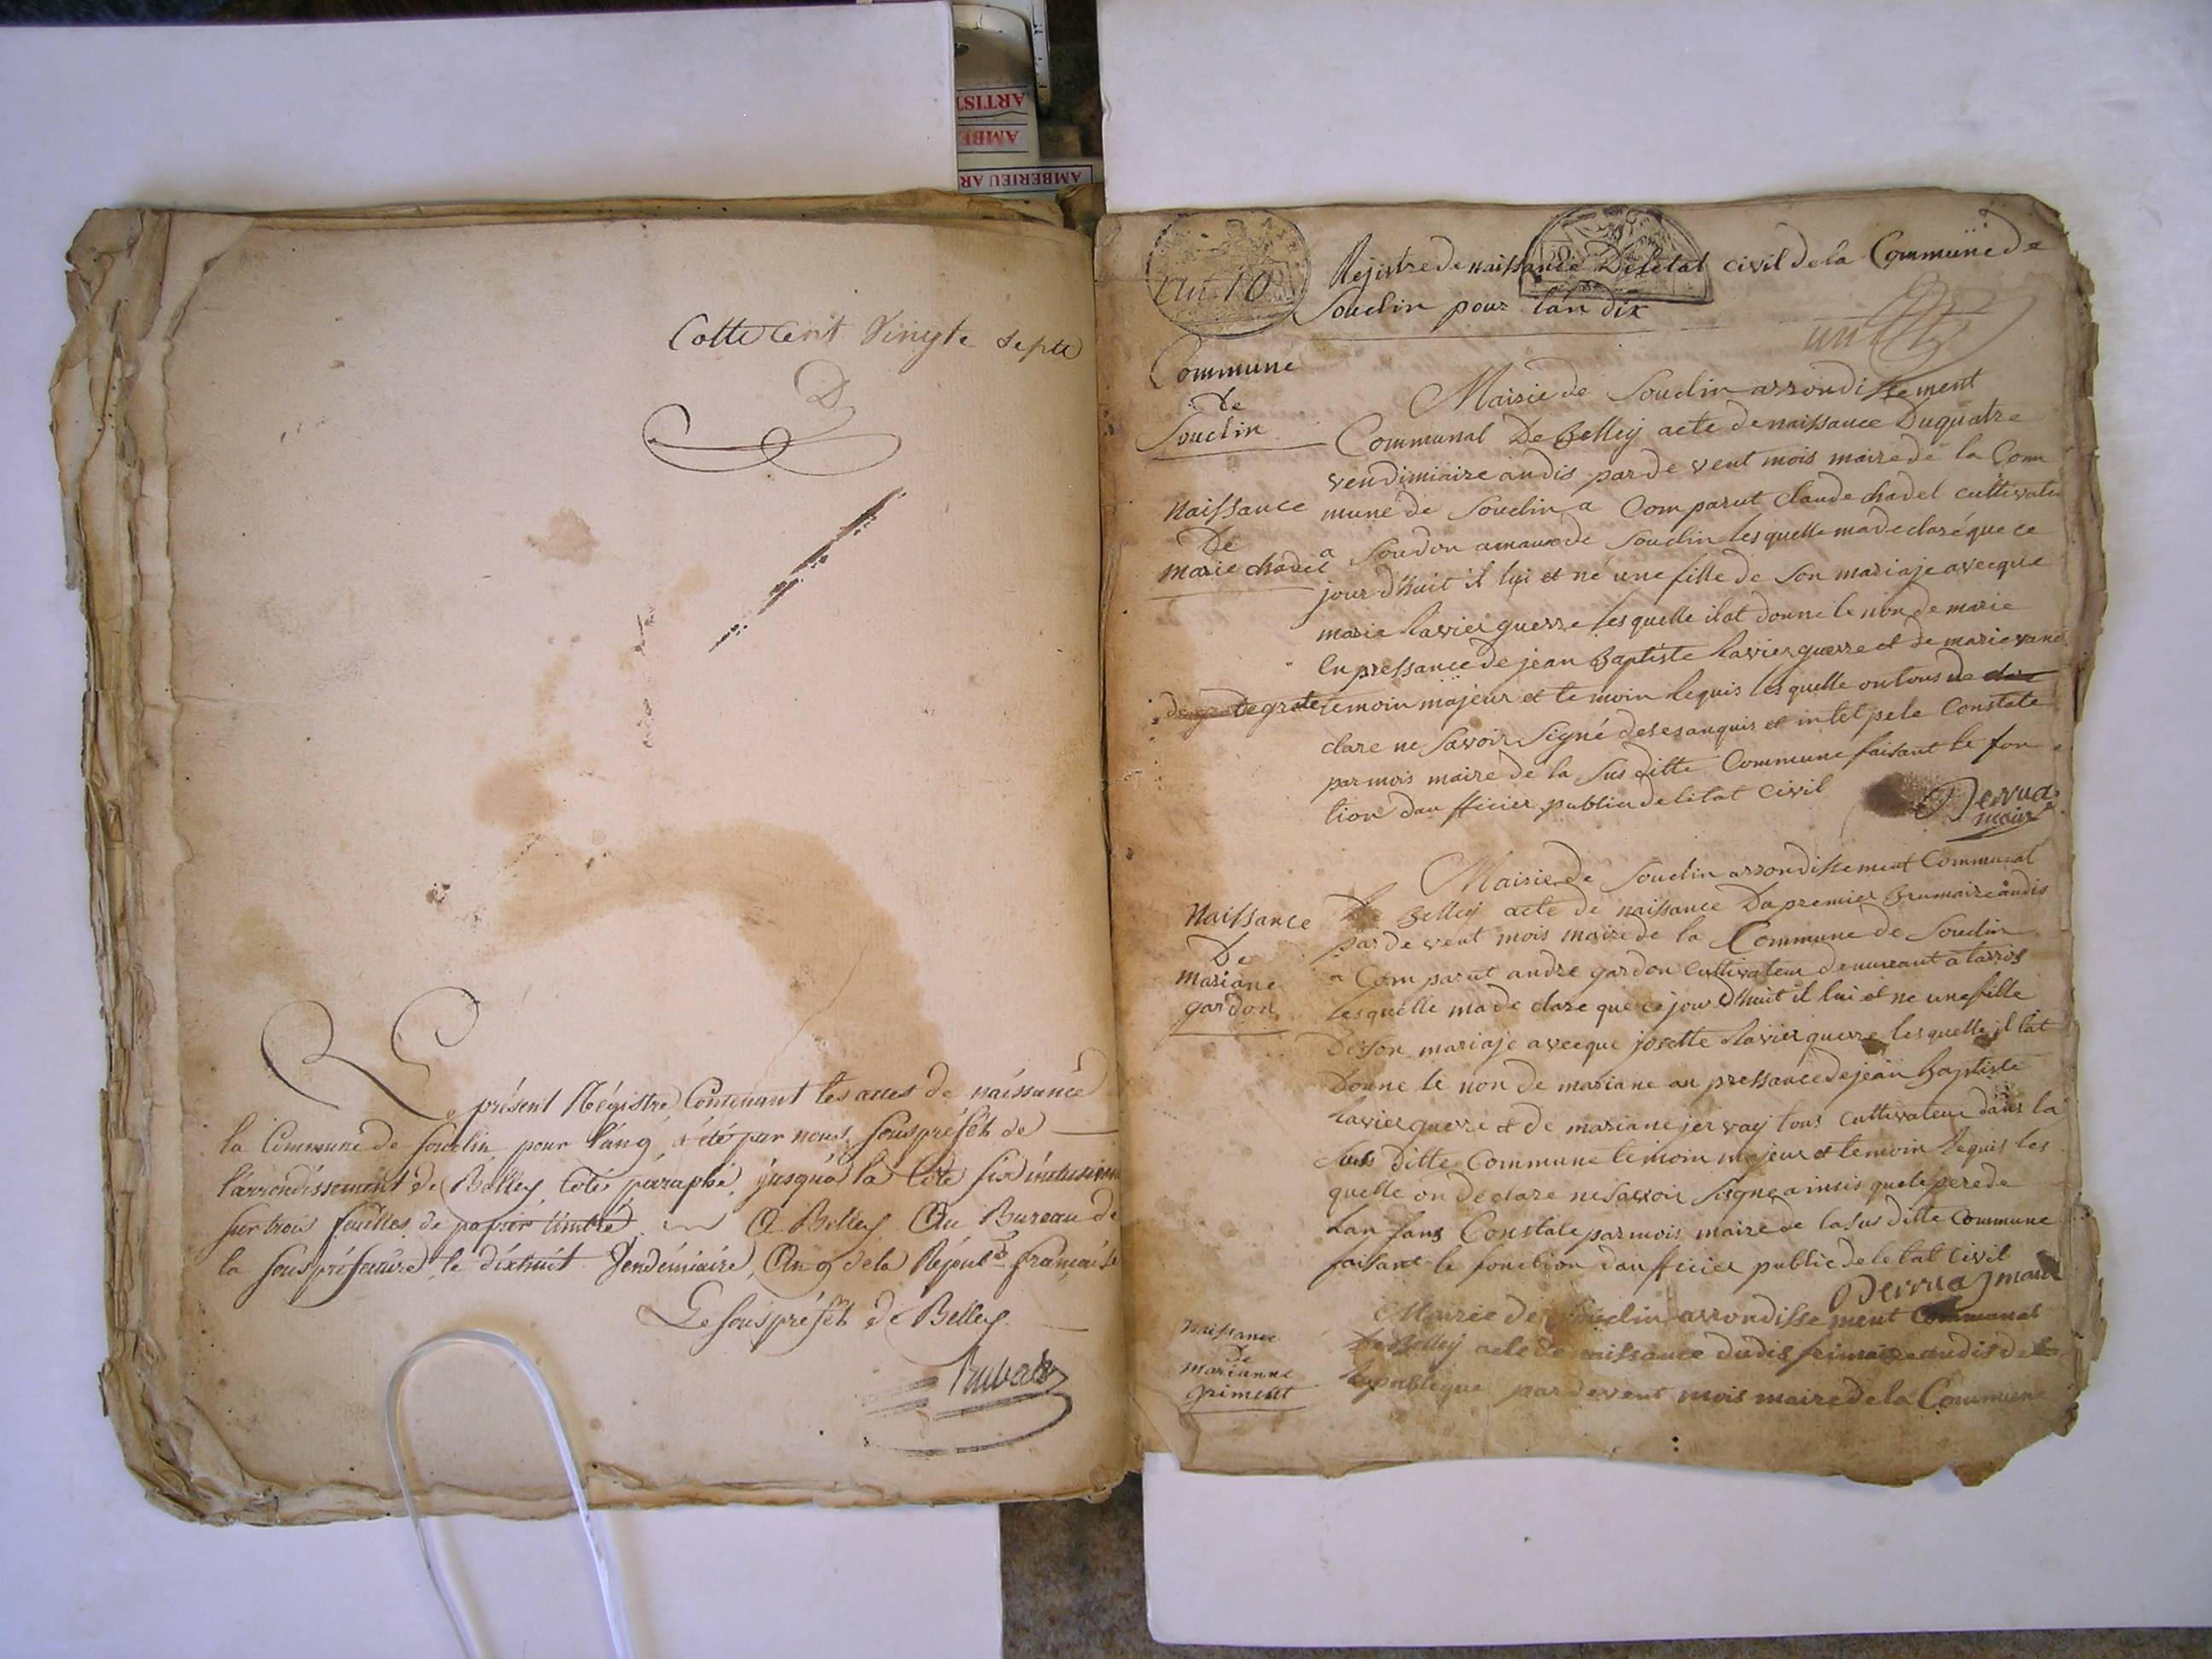 ARTIST
AMBE
AMBERIEU AR
Cotte Cent Vingte septe
Le présent Régistre Contenant les actes de naissance
la Commune de Souclin pour l'an 9, a été par nous, sous préfét de
l'arrondissement de Belley, coté, paraphé, jusqu'à la cote six
sur trois feuilles de papier timbré. A Belley Au Bureau de
la sous préfecture, le dixhuit Vendémiaire, An 9 de la Républ française
Le sous préfét de Belley
an 10
Rejistre de naissance De letat civil de la Commune de
Souclin pour lan dix
un
Commune
de
Souclin
Mairie de Souclin arrondissement
Communal De Belley acte de naissance Du quatre
vendimiaire an dis par de vent mois maire de la Com
mune de Souclin a Comparut claude chadel cultivate
a Soudon amaux de Souclin lesquelle ma declaré que ce
jour dhuit il lui et né une fille de Son mariaje avecque
marie Ravierguerre lesquelle il at donne le non de marie
En pressance de jean Baptiste Ravierguerre et de marie
temoin majeur et te moin Requis les quelle on tous de
clare ne Savoir Signé et intelpele Constate
par mois maire de la Sus ditte Commune faisant le fon
tion dau fficier publicu de létat civil
Derrua
maire
Naissance
De
marie chadel
Naissance
De
mariane
gardon
Mairie de Souclin arrondissement Communal
De Belley acte de naissance Du premier Brumaire an dis
par de vent mois maire de la Commune de Souclin
a Comparut andre gardon Cultivateur demureant a
lesquelle ma de clare que ce jour dhuit il lui et ne une fille
De Son mariaje avecque josette Ravierguerre lesquelle il lat
Donne le non de mariane au pressance de jean Baptiste
Ravierguerre et de mariane jervay tous cultivateur dans la
Sus ditte Commune temoin majeur et temoin Requis les
quelle on declare ne Savoir Signe ainsis que le pere de
Lan fans Constate par mois maire de la Sus ditte Commune
faisant le fonction dau fficier public de le tat civil
Derrua maire
Naissance
De
marianne
griment
Mairie de Souclin arrondisse ment Communal
De Belley acte de naissance du dis frimaire an dis de la
Republique par devent mois maire de la Commune